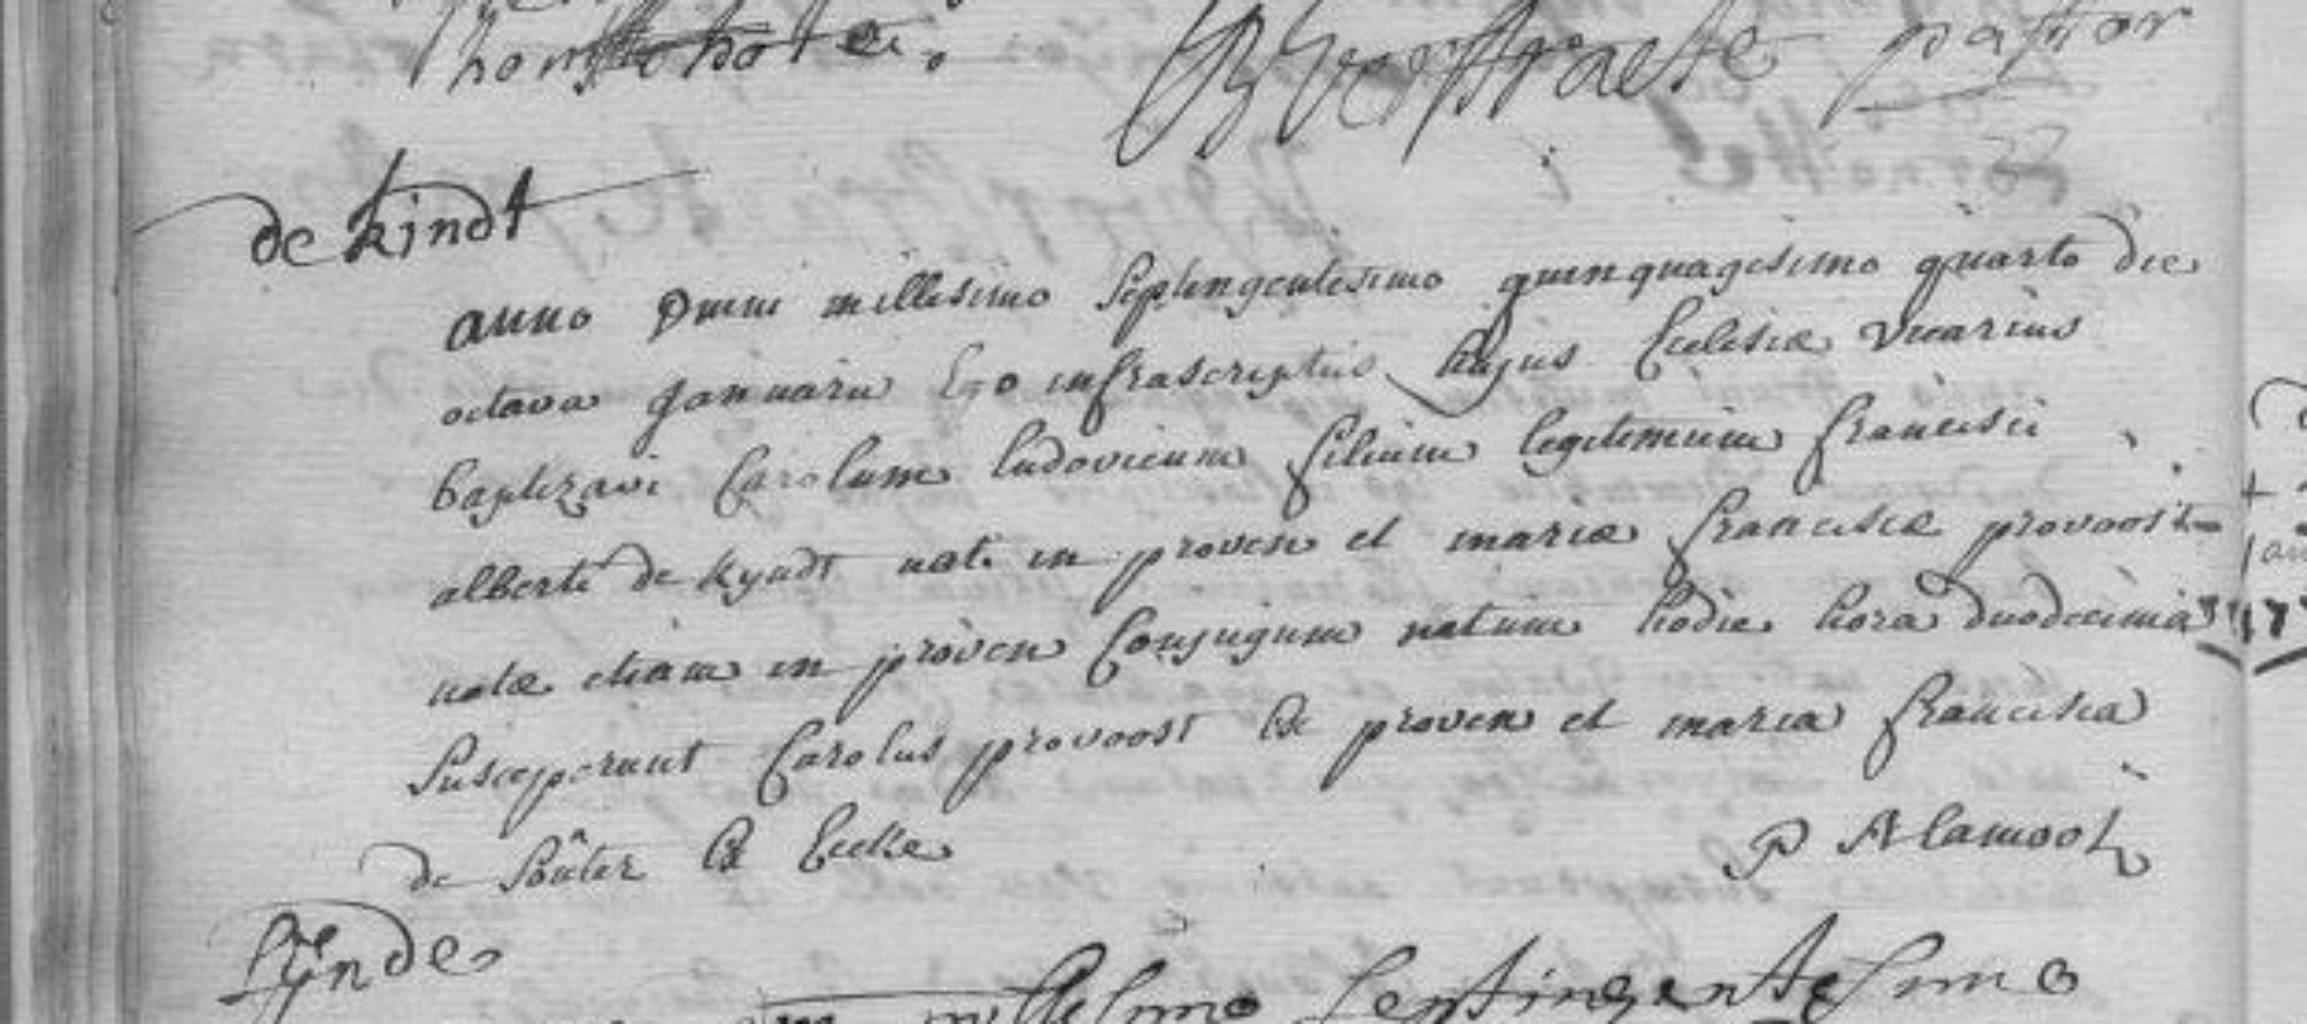 BVerstraete pastor
de kindt
anno Dmni millesimo septengentesimo quinquagesimo quarto die
octava januarii Ego infrascriptus hujus Ecclesiæ vicarius
baptizavi Carolum ludovicum filium legitimum francisci
alberti de kyndt nati in proven et mariæ franciscæ provoost
natæ etiam in proven Conjugum natum hodie hora duodecima
Susceperunt Carolus provoost ex proven et maria francisca
de Soûter ex Eecke
P Alamoot
millesimo septingentesimo